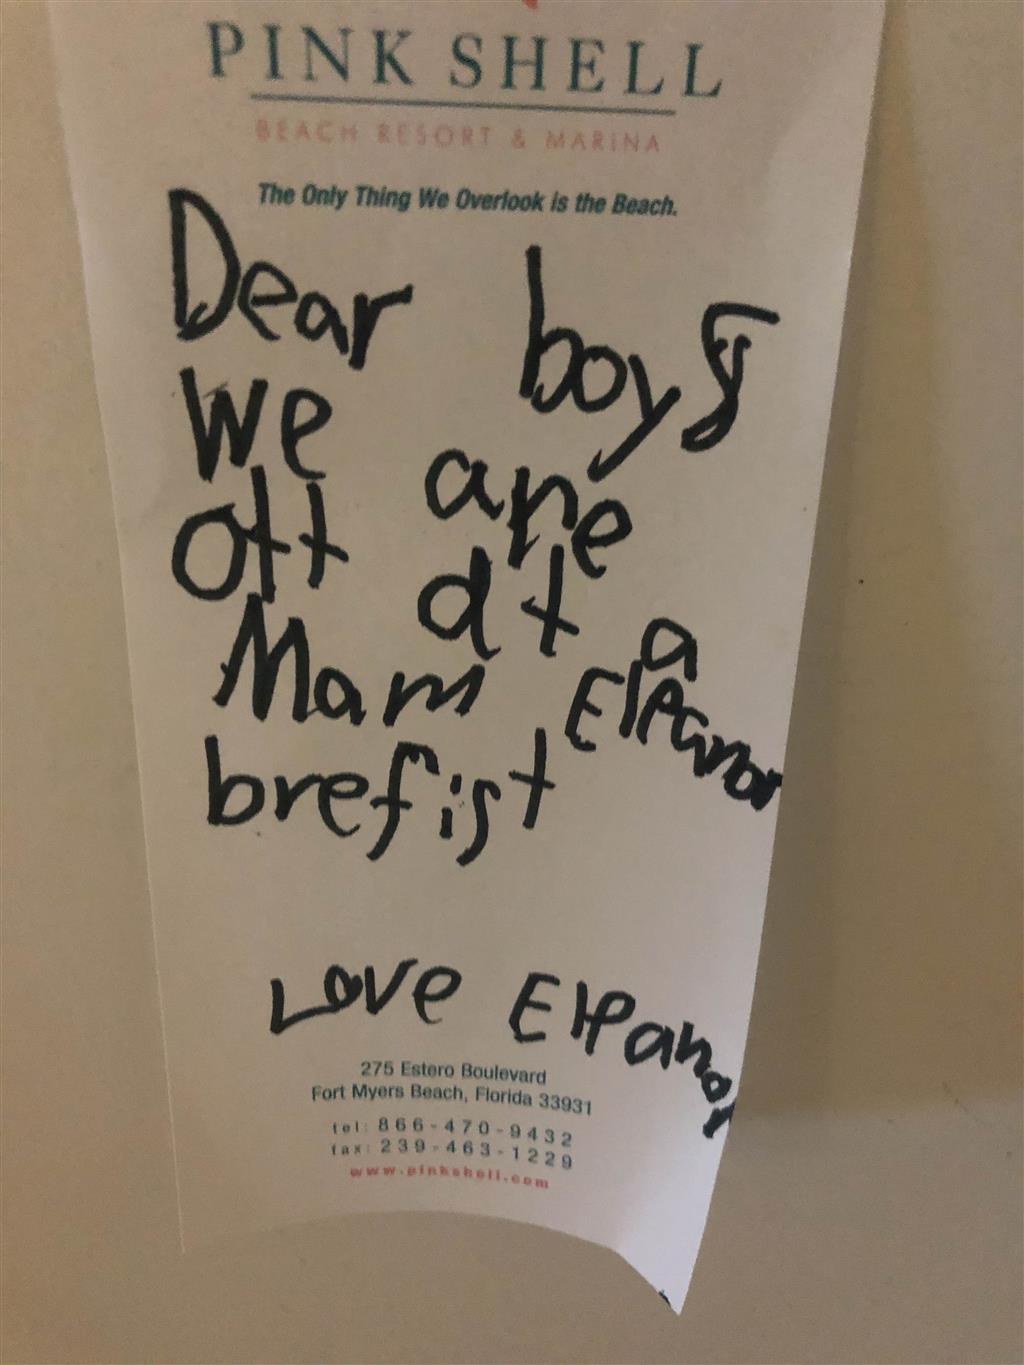 PINK SHELL
BEACH RESORT & MARINA
The Only Thing We Overlook is the Beach.
Dear boys
we are
Ott at a
Mam Eleanor
brefist
Love Eleanor
275 Estero Boulevard
Fort Myers Beach, Florida 33931
tel: 866-470-9432
fax: 239-463-1229
www.pinkshell.com